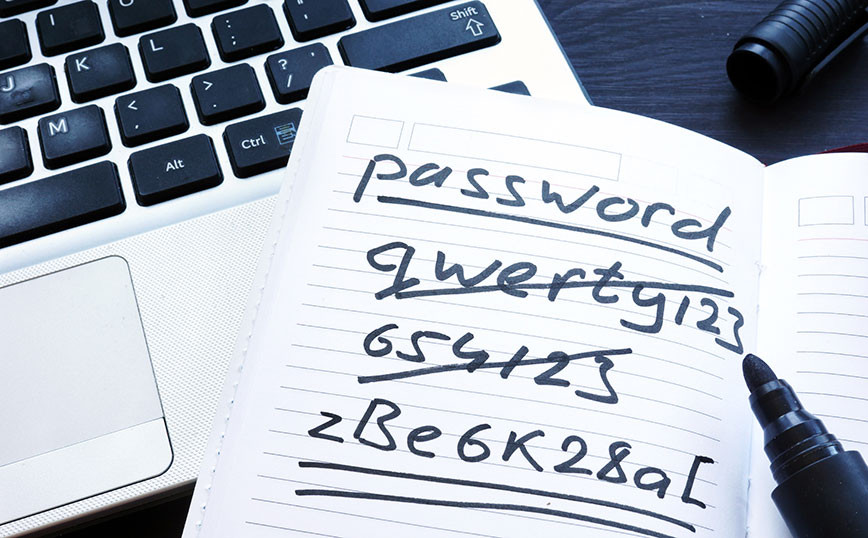 I O P { [ } ]
J K L : ; " '
M < , > . ? / Shift
Alt Ctrl
password
qwerty123
654123
zBe6K28a[